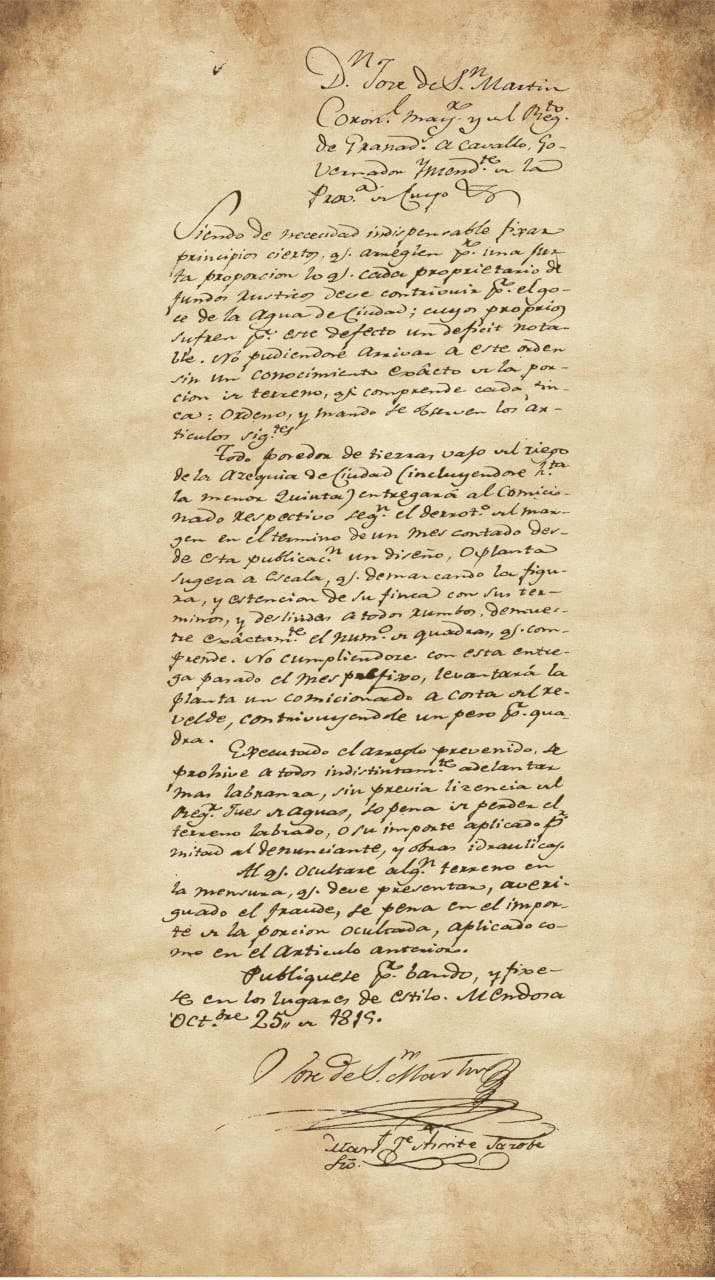 Dn. Jose de Sn. Martin
Coron.l may.r y del Reg.to
de Granad.s a Cavallo, Go-
vernador Yntend.te de la
Prov.a de Cuyo &a
Siendo de necesidad indispensable fixar
principios ciertos, q.e arreglen p.r una jus-
ta proporcion lo q.e cada proprietario de
fundos rusticos deve contribuir p.r el go-
ce de la Agua de Ciudad; cuyos proprios
sufren p.r este defecto un deficit nota-
ble. No pudiendose arrivar a este orden
sin un conocimiento exâcto de la por-
cion de terreno, q.e comprende cada fin-
ca: Ordeno, y mando se observen los ar-
ticulos sig.tes
Todo poseedor de tierras vajo del riego
de la Azequia de Ciudad (incluyendose h.ta
la menor Quinta) entregará al Comicio-
nado respectivo seg.n el derrot.o del mar-
gen en el termino de un mes contado des-
de esta publicac.n un diseño, o planta
sugeta a Escala, q.e demarcando la figu-
ra, y estencion de su finca con sus ter-
minos, y deslindes a todos rumbos, demues-
tre exâctam.te el num.o de quadras, q.e com-
prende. No cumpliendose con esta entre-
ga pasado el mes prefixo, levantará la
planta un comicionado a costa del re-
velde, contrivuyendole un peso p.r qua-
dra.
Executado el arreglo prevenido, se
prohive a todos indistintam.te adelantar
mas labranza, sin previa lizencia del
Reg.r Jues de Aguas, so pena de perder el
terreno labrado, o su importe aplicado p.r
mitad al denunciante, y obras idraulicas.
Al q.e ocultare alg.n terreno en
la mensura, q.e deve presentar, averi-
guado el fraude, se pena en el impor-
te de la porcion ocultada, aplicado co-
mo en el Articulo anterior.
Publiquese p.r bando, y fixe-
se en los lugares de estilo. Mendosa
Oct.bre 25,, de 1815.
Jose de Sn. Martin